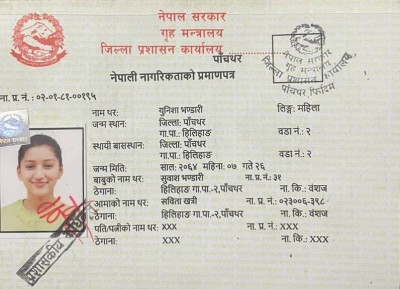 नेपाल सरकार
गृह मन्त्रालय
जिल्ला प्रशासन कार्यालय ........ पाँचथर
नेपाली नागरिकताको प्रमाणपत्र
नेपाल सरकार
गृह मन्त्रालय
जिल्ला प्रशासन कार्यालय
पाँचथर, फिदिम
ना. प्र. नं.: ०२-०१-८१-००१९५
नाम थर: युनिशा भण्डारी लिङ्ग: महिला
जन्म स्थान: जिल्ला: पाँचथर
गा.पा.: हिलिहाङ वडा नं.: २
स्थायी बासस्थान: जिल्ला: पाँचथर
गा.पा.: हिलिहाङ वडा नं.: २
जन्म मिति: साल: २०६४ महिना: ०७ गते २६
बाबुको नाम थर: सुवास भण्डारी ना. प्र. नं.: ३१
ठेगाना: हिलिहाङ गा.पा.-२, पाँचथर ना. कि.: वंशज
आमाको नाम थर: सबिता खत्री ना. प्र. नं.: ०२३००६-३९८
ठेगाना: हिलिहाङ गा.पा.-२, पाँचथर ना. कि.: वंशज
पति/पत्नीको नाम थर: XXX ना. प्र. नं.: XXX
ठेगाना: XXX ना. कि.: XXX
प्रशासकीय